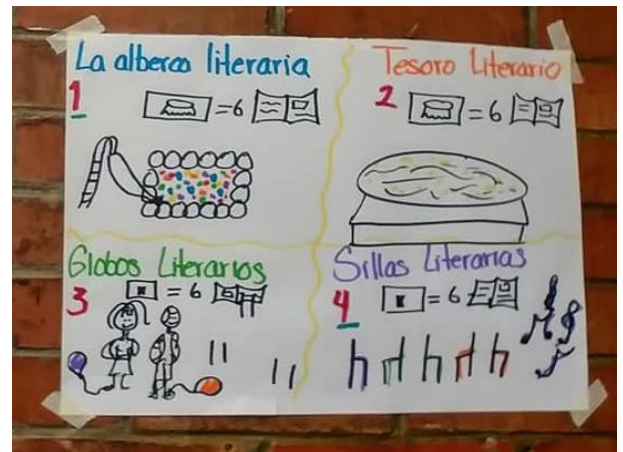 La alberca literaria
1
=6
Tesoro Literario
2
=6
Globos Literarios
3
=6
Sillas Literarias
4
=6